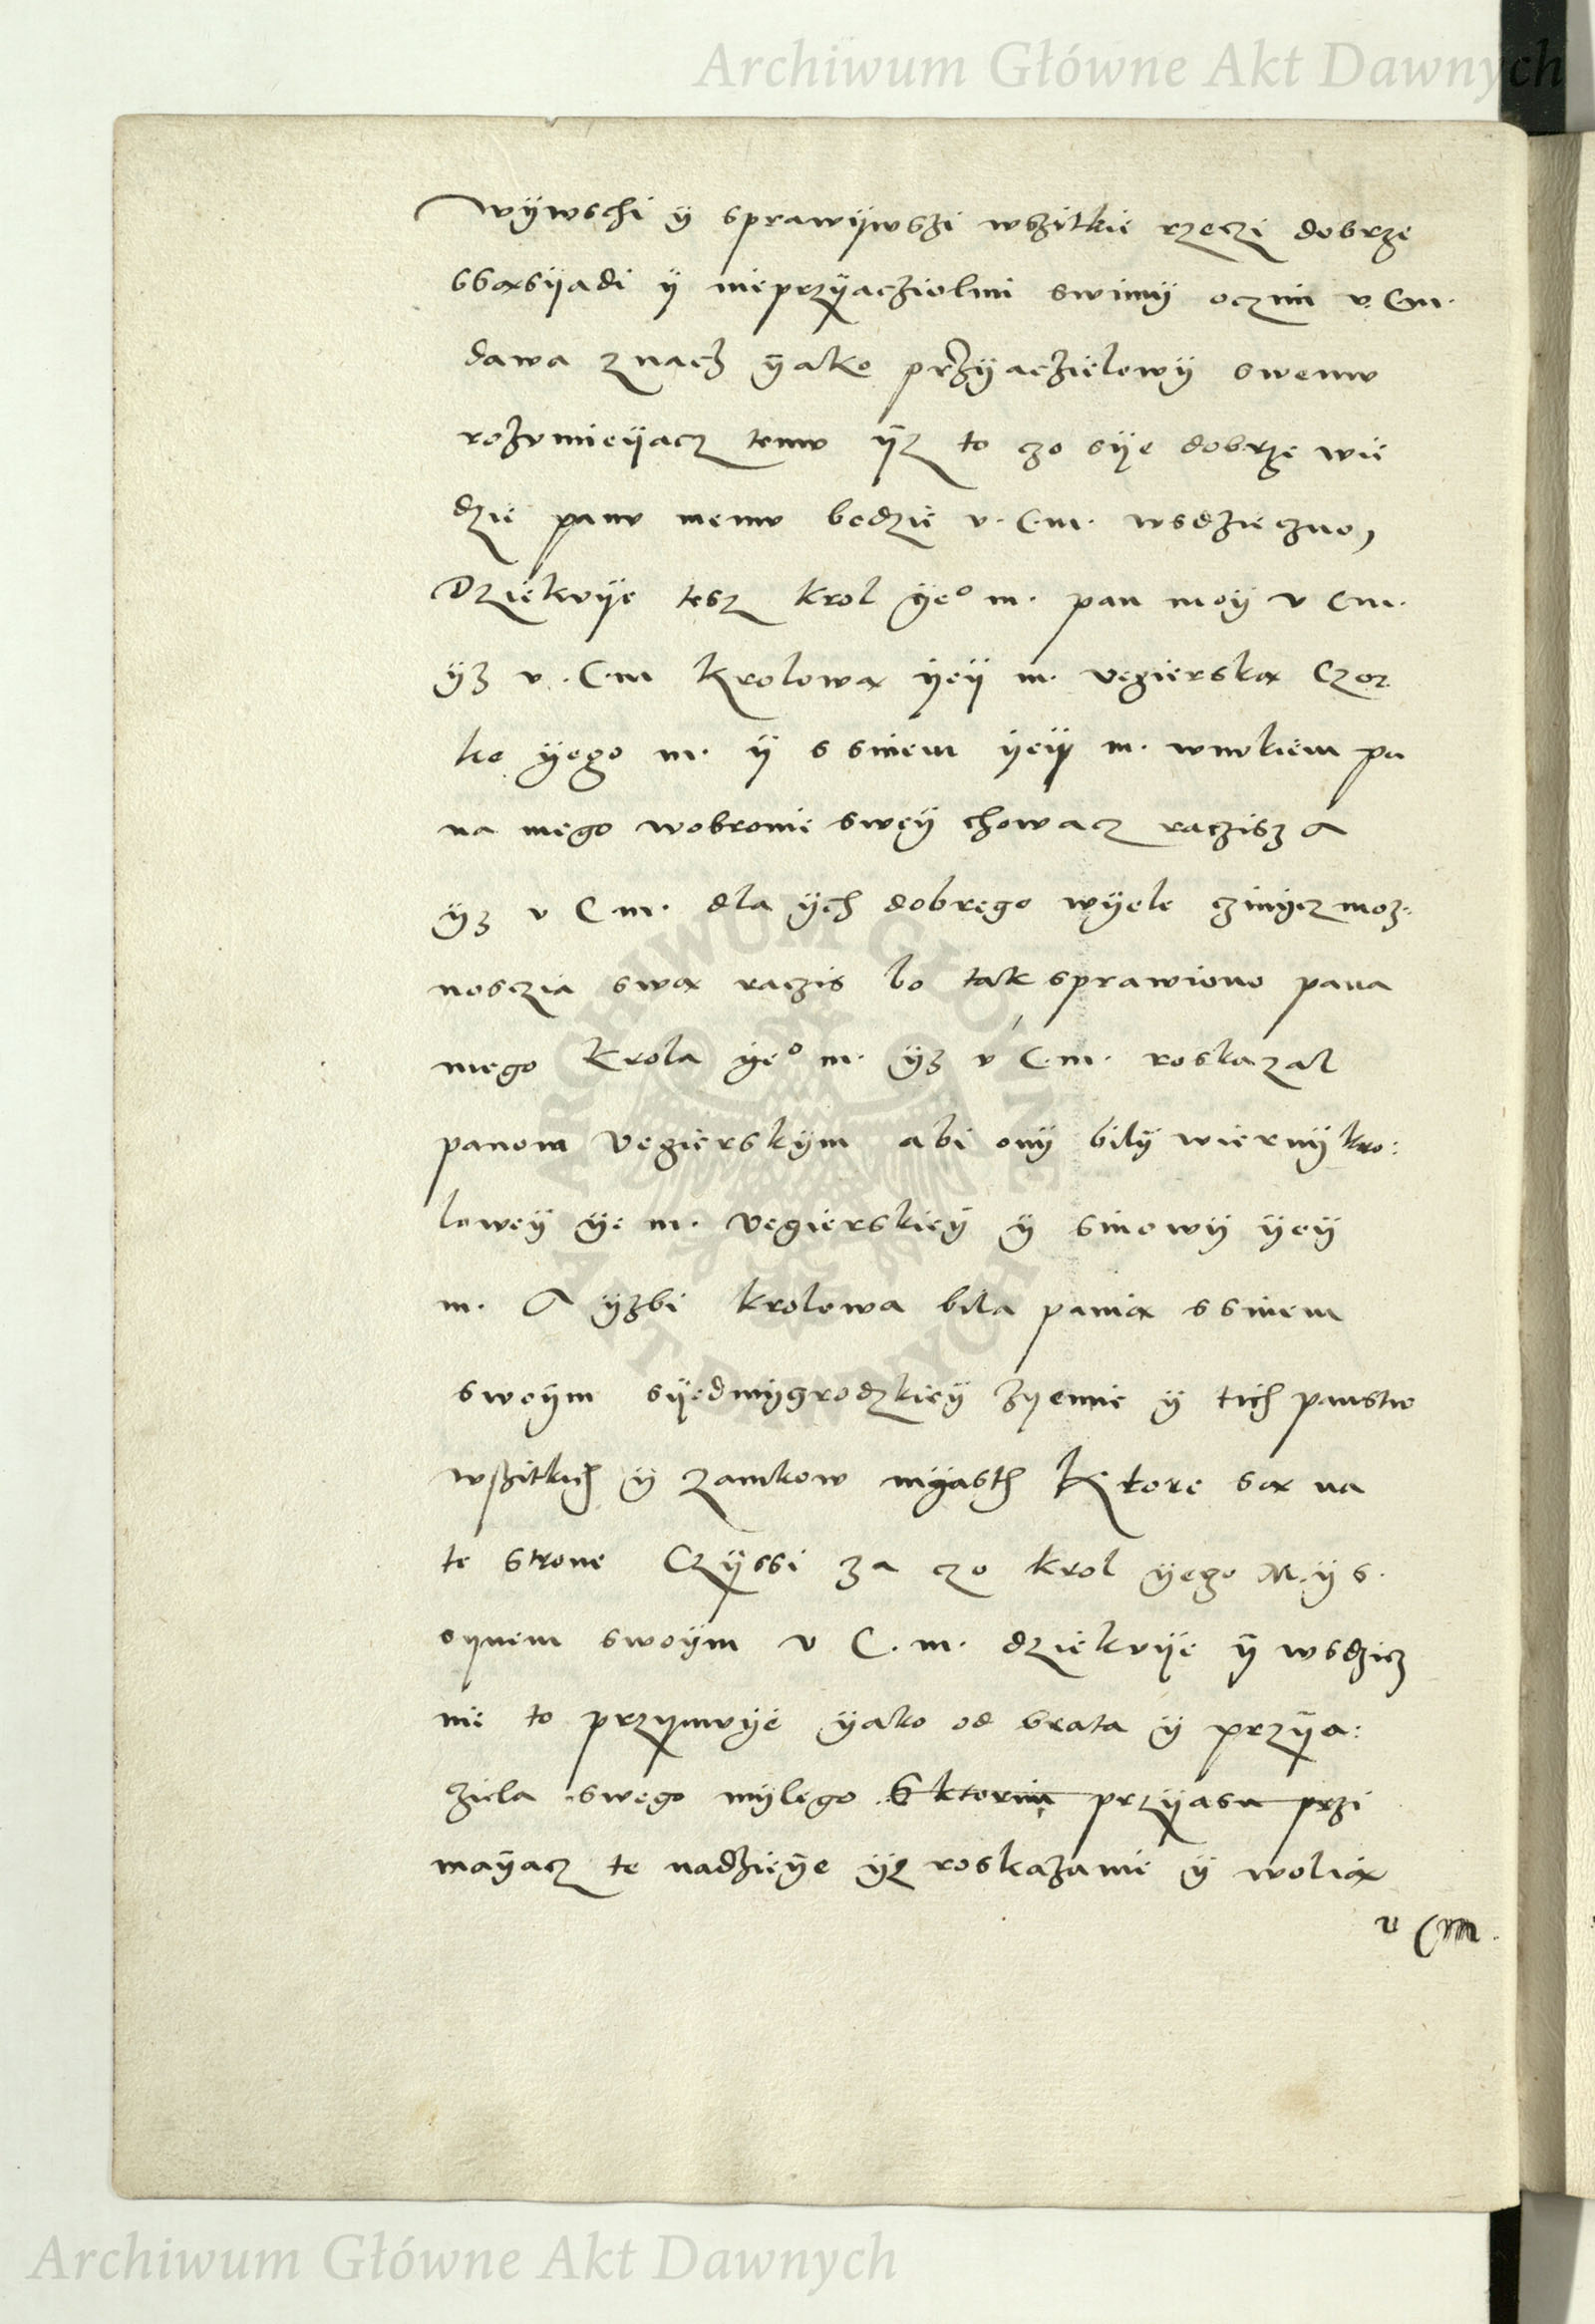 Archiwum Główne Akt Dawnych
wÿwschi ÿ sprawÿwszi wszitkie rzeczi dobrze
ssąsÿadi ÿ nieprzÿacziolmi swimÿ oczmi v. Cm.
dawa znacz ÿako przÿaczielowÿ swemv
rozvmieÿacz temv ÿz to czo sÿe dobrze wie
dzie panv memv bedzie v. C.m. wsdzieczno,
Dziekvÿe tesz krol ÿeo m. pan moÿ v Cm.
ÿz v. C.m krolowa ÿeÿ m. vegierska Czor
ke ÿego m. ÿ s sinem ÿeÿ m. wnvkiem pa
na mego wobronie sweÿ chowacz raczisz A
ÿz v C m. dla ÿch dobrego wÿele czinÿcz moz:
nosczia swą raczis bo tak sprawiono pana
mego krola ÿeo m. ÿz v C.m. roskazal
panom vegierskÿm abi onÿ bilÿ wiernÿ kro:
loweÿ ÿe m. vegierskieÿ ÿ sinowÿ ÿeÿ
m. A ÿzbi krolowa bila panią s sinem
swoÿm sÿedmÿgrodzkieÿ zÿemie ÿ tich panstw
wszitkich ÿ zamkow mÿasth Ktore są na
te strone Czÿssi za czo krol ÿego M. ÿ s.
sÿnem swoÿm v C. m. dziekvÿe ÿ wsdziecz
nie to przÿmvÿe ÿako od brata ÿ przÿa:
ziela swego mÿlego S ktorim przÿasn przi
maÿacz te nadzieÿe ÿz roskazanie ÿ wolią
v Cm.
Archiwum Główne Akt Dawnych